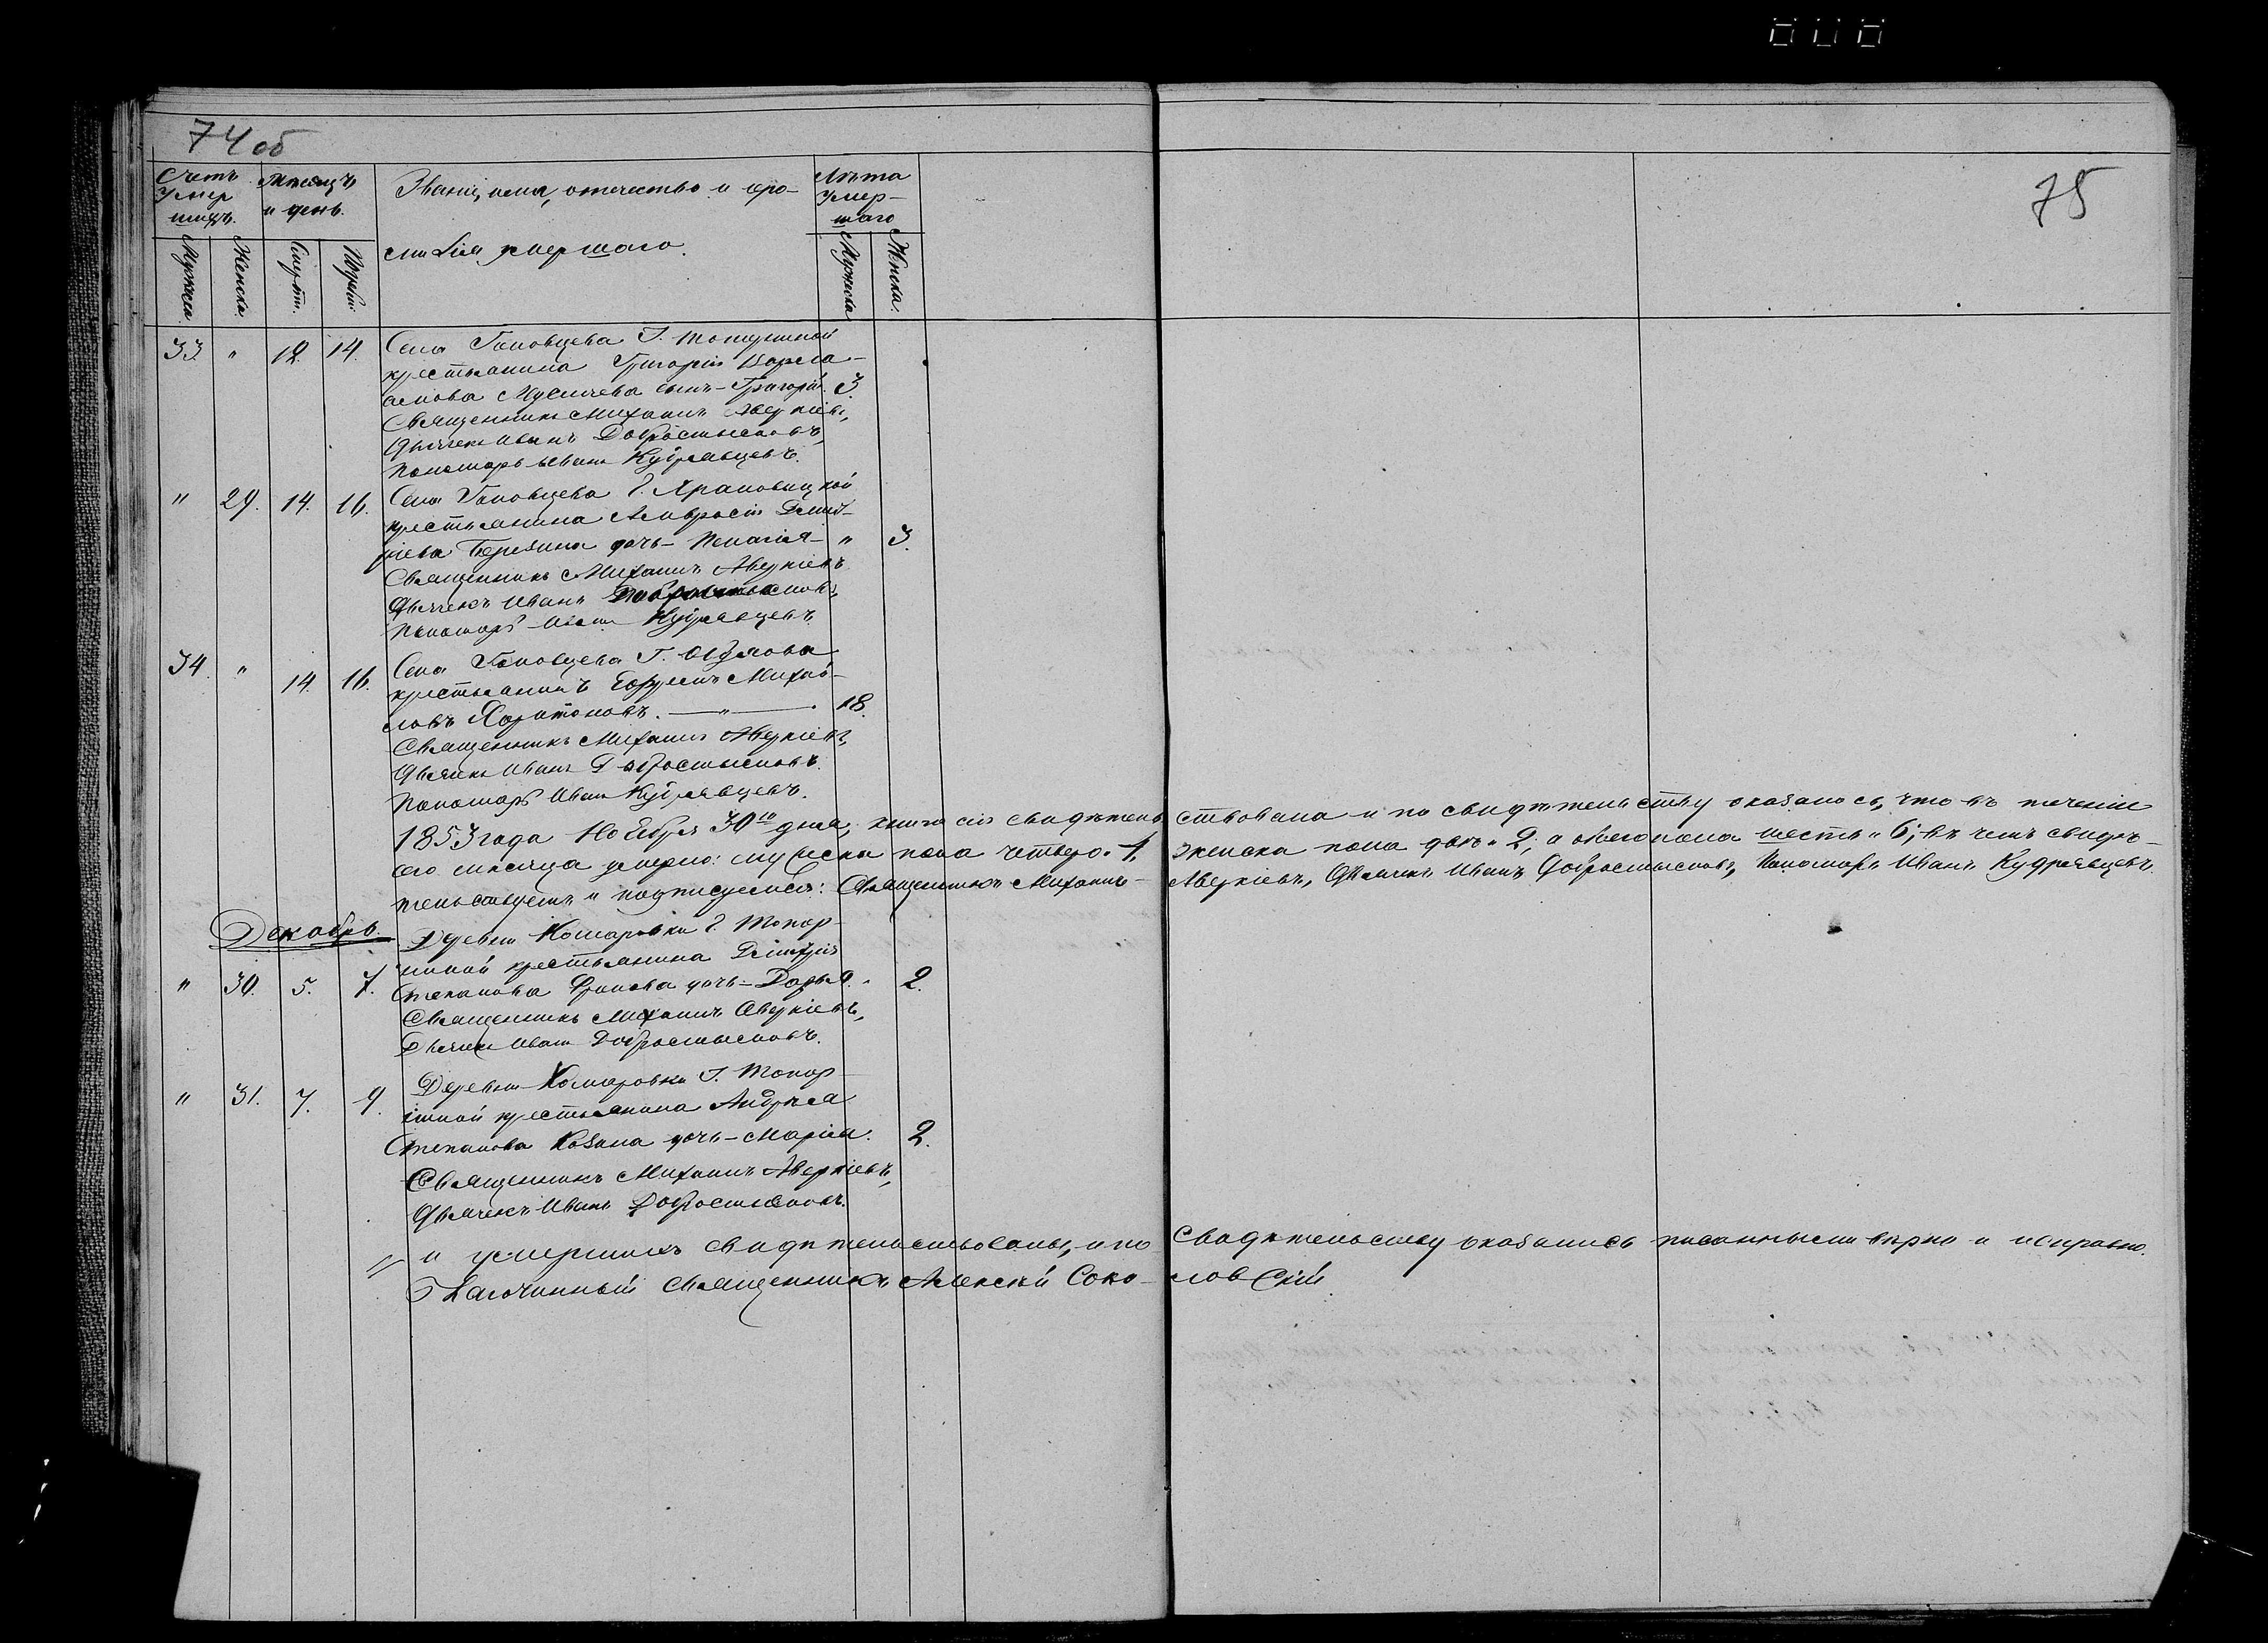 74 об
75
Счетъ умер шихъ.
Мѣсяцъ и день.
Званіе, имя, отечество и про-
Лѣта умер- шаго
Мужеска
Женска
Смерт.
Погреб.
умершаго.
Мужеска
Женска.
33. " 12. 14. Села Головцева Г.
крестьянина Григорія Варла-
амова сынъ - Григорій. 3.
Священникъ Михаилъ Аверкіевъ,
Дьячекъ Иванъ Добросмысловъ,
Пономарь Иванъ Кудрявцевъ.
" 29. 14. 16. Села Головцева Г. Храповицкой
крестьянина Амвросія Дмит-
ріева дочь - Пелагія - " 3.
Священникъ Михаилъ Аверкіевъ
Дьячекъ Иванъ Добросмысловъ,
Пономарь Иванъ Кудрявцевъ.
34. " 14. 16. Села Головцева Г.
крестьянинъ Михай-
ловъ Харитоновъ. — " — 18.
Священникъ Михаилъ Аверкіевъ,
Дьячекъ Иванъ Добросмысловъ.
Пономарь Иванъ Кудрявцевъ.
1853 года Ноября 30го дня, книга сія свидѣтельствована и по свидѣтельству оказалось, что въ теченіи
сего мѣсяца умерло: мужеска пола четверо. 4, женска пола двѣ. 2; а обоего пола шесть. 6; въ чемъ свидѣ-
тельствуемъ и подписуемся: Священникъ Михаилъ Аверкіевъ, Дьячекъ Иванъ Добросмысловъ, Пономарь Иванъ Кудрявцевъ.
Декабрь.
Деревни Комаровки Г. Топор-
ниной крестьянина Димитрія
" 30. 5. 7. Степанова дочь - Дарья. " 2.
Священникъ Михаилъ Аверкіевъ,
Дьячекъ Иванъ Добросмысловъ.
" 31. 7. 9. Деревни Комаровки Г. Топор-
ниной крестьянина Андрея
Степанова Козина дочь - Марія. 2.
Священникъ Михаилъ Аверкіевъ,
Дьячекъ Иванъ Добросмысловъ.
и умершихъ свидѣтельствованы, и по свидѣтельству оказались писанными вѣрно и исправно.
Благочинный Священникъ Алексій Соколовскій